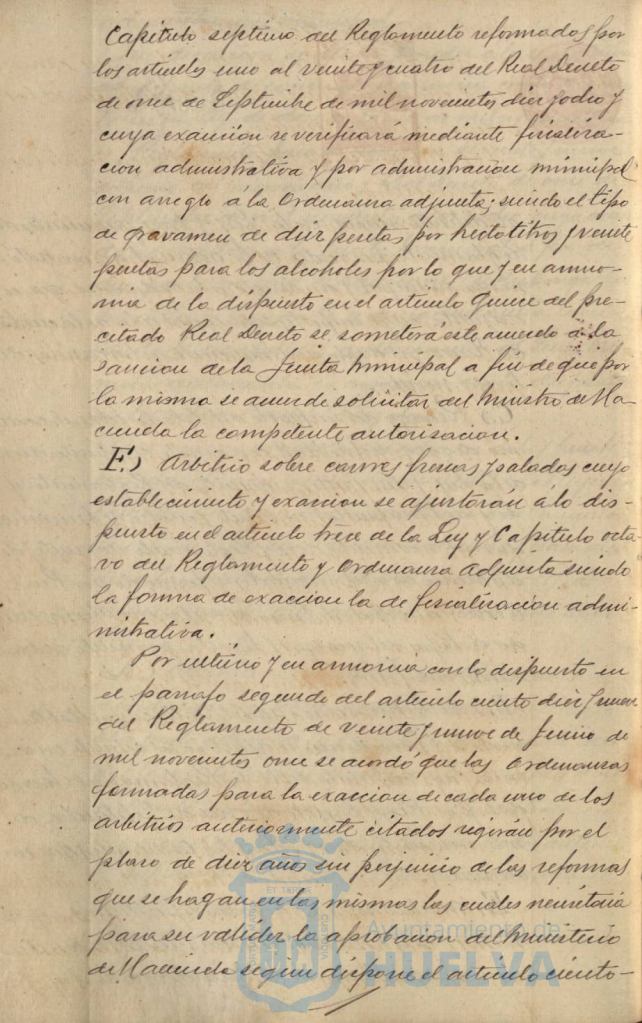 Capitulo septimo del Reglamento reformados por
los articulos uno al veinte y cuatro del Real Decreto
de once de Septiembre de mil novecientos diez y ocho y
cuya exaccion se verificará mediante fiscaliza-
cion administrativa y por administracion municipal
con arreglo á la Ordenanza adjunta; siendo el tipo
de gravamen de diez pesetas por hectolitros y veinte
pesetas para los alcoholes por lo que y en armo-
nia de lo dispuesto en el articulo quince del pre-
citado Real Decreto se someterá este acuerdo á la
sancion de la Junta Municipal a fin de que por
la misma se acuerde solicitar del Ministro de Ha-
cienda la competente autorisacion.
F.) Arbitrio sobre carnes frescas y saladas cuyo
establecimiento y exaccion se ajustarán á lo dis-
puesto en el articulo trece de la Ley y Capitulo octa-
vo del Reglamento y Ordenanza adjunta siendo
la forma de exaccion la de fiscalizacion admi-
nistrativa.
Por ultimo y en armonia con lo dispuesto en
el parrafo segundo del articulo ciento diez y nueve
del Reglamento de veinte y nueve de Junio de
mil novecientos once se acordó que las Ordenanzas
formadas para la exaccion de cada uno de los
arbitrios anteriormente citados regirán por el
plazo de diez años sin perjuicio de las reformas
que se hagan en las mismas las cuales necesitaria
para su validez la aprobacion del Ministerio
de Hacienda segun dispone el articulo ciento-
Ayuntamiento de
HUELVA